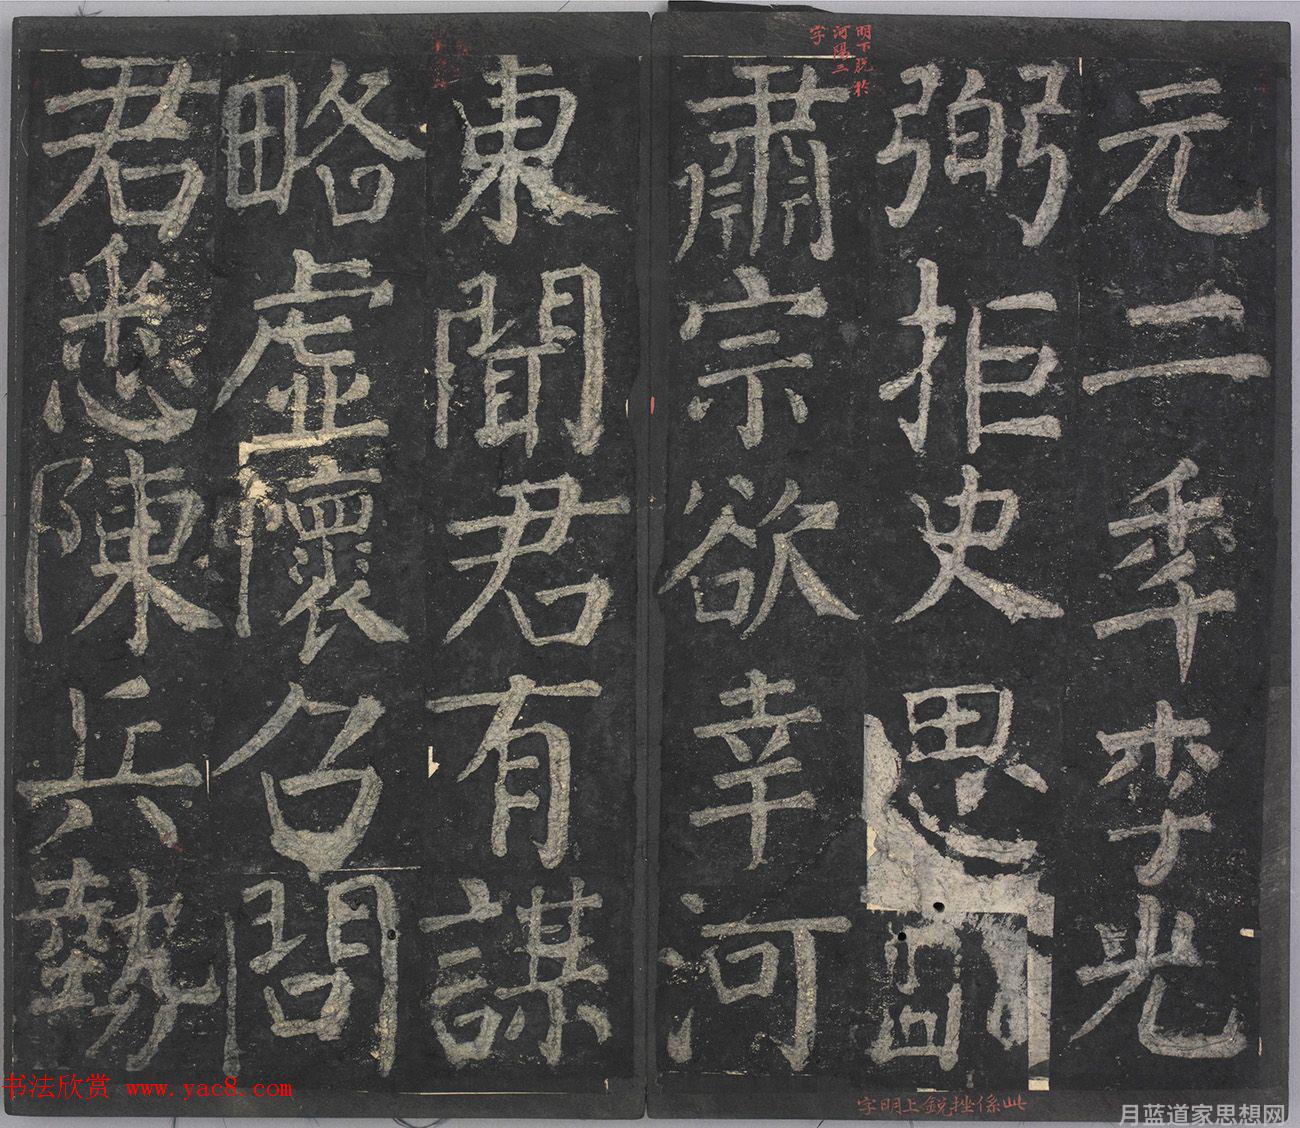 明下脫於
河陽三
字
元二秊李光
弼拒史思明
肅宗欲幸河
東聞君有謀
略虛懷召問
君悉陳兵勢
此係挫銳上明字
书法欣赏 www.yac8.com
月蓝道家思想网